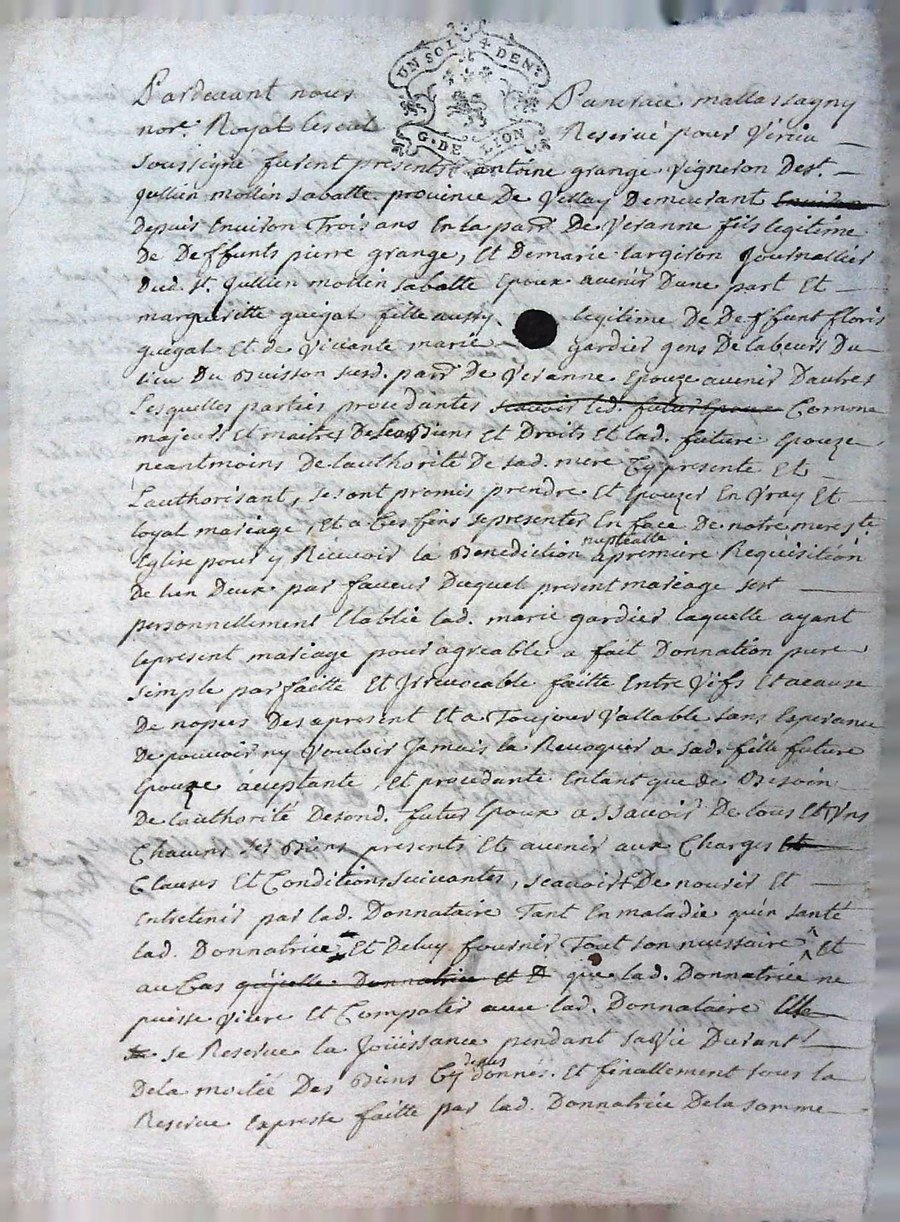 UN SOL 4 DEN.
G. DE LION
Pardevant nous Pancrace mallassagny
nore. Royal Reservé pour
soussigné furent presents antoine grange vigneron De st.
jullien mollin sabatte province De Vellay Demeurant
Depuis Environ Trois ans En la parr. De Veranne fils legitime
De Deffunts pierre grange, Et De marie largiron Journallier
Dud. st. Jullien mollin sabatte Epoux avenir D'une part Et
margueritte guegat fille aussy legitime De Deffunt floris
guegat Et de Vivante marie gardier gens De labeurs Du
lieu Du Buisson susd. parr. De Veranne Epouze avenir D'autres
Lesquelles parties procedantes scavoir led. futur Epoux Comme
majeurs Et maitres De leurs Biens Et Droits Et lad. future Epouze
neantmoins De lauthorité De sad. mere Cy presente Et
Lauthorisant, se sont promis prendre Et Epouzer En Vray Et
loyal mariage, Et a Ces fins se presenter En face De notre mere ste.
Eglise pour y Recevoir la Benediction nuptialle a premiere Requisition
De lun Deux par faveur Duquel present mariage sest
personnellement Etablie lad. marie gardier laquelle ayant
le present mariage pour agreable a fait Donnation pure
simple parfaitte Et Jrrevocable faitte Entre Vifs Et a cause
De nopces Des apresent Et a Toujour Vallable sans Esperance
De pouvoir ny Vouloir Jamais la Revoquer a sad. fille future
Epouze acceptante, Et procedante En tant que de Besoin
De lauthorité De sond. futur Epoux assavoir De tous Et Uns
Chacuns ses Biens presents Et avenir aux Charges Et
Clauses Et Conditions suivantes, scavoir De nourir Et
Entretenir par lad. Donnataire Tant En maladie qu'en santé
lad. Donnatrice Et De luy fournir Tout son nessaire Et
au Cas qu'jcelle Donnatrice et que lad. Donnatrice ne
puisse Vivre Et Compatir avec lad. Donnataire Elle
se Reserve la Joüissance pendant sa Vie Durant
De la moitié Des Biens Cy dessus donnés. Et finallement sous la
Reserve Expresse faitte par lad. Donnatrice De la somme